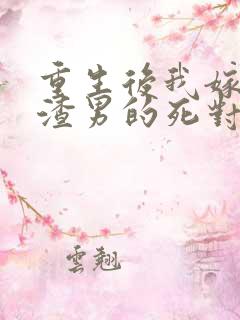 重生後我嫁
渣男的死對
雲翹